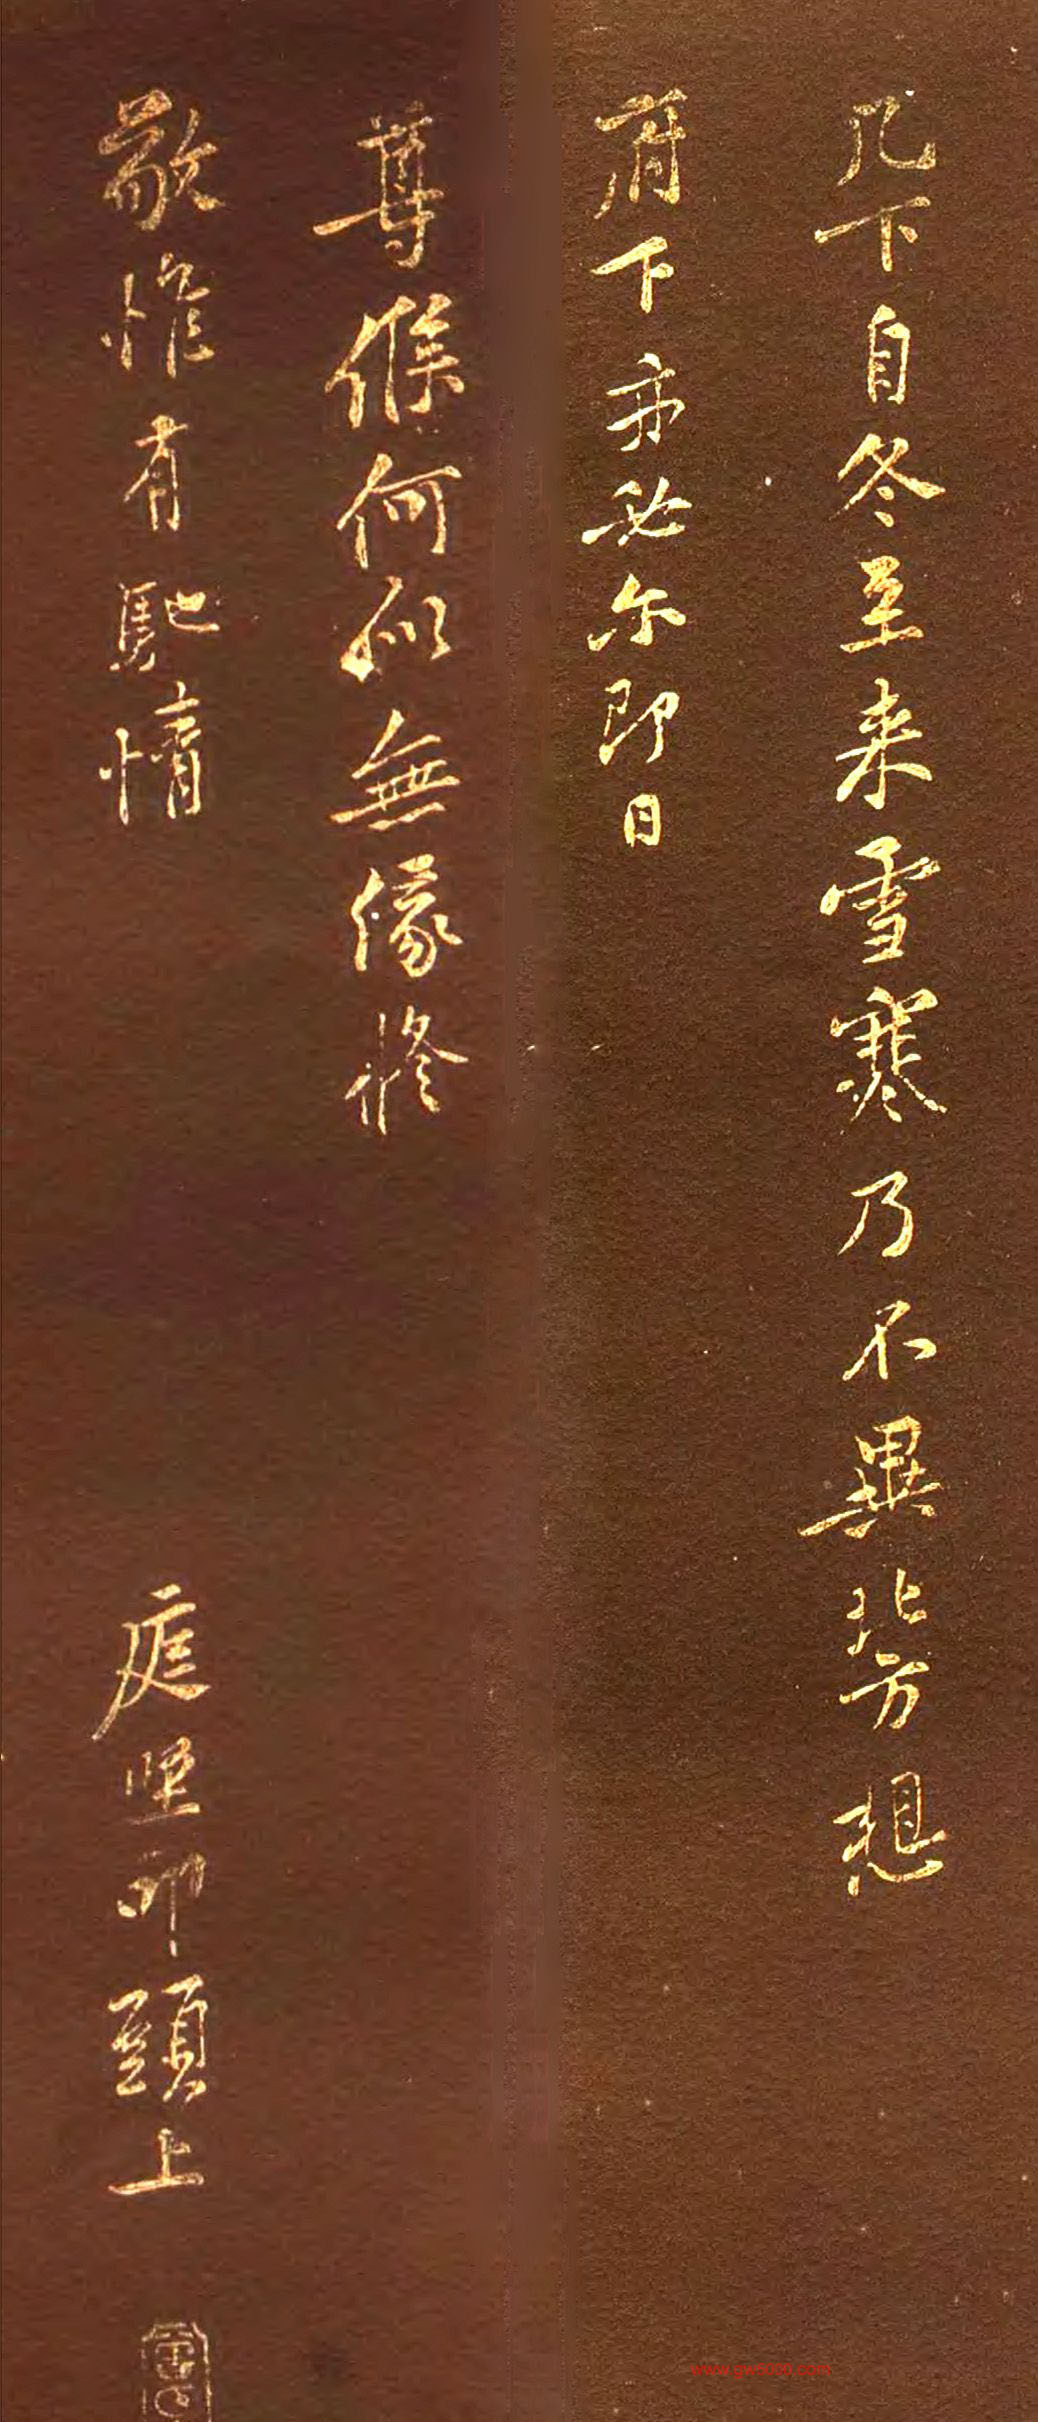 几下自冬至来雪寒乃不異北方想
府下亦必尔即日
尊候何似無緣修
敬惟有馳情
庭坚叩頭上
www.gw5000.com